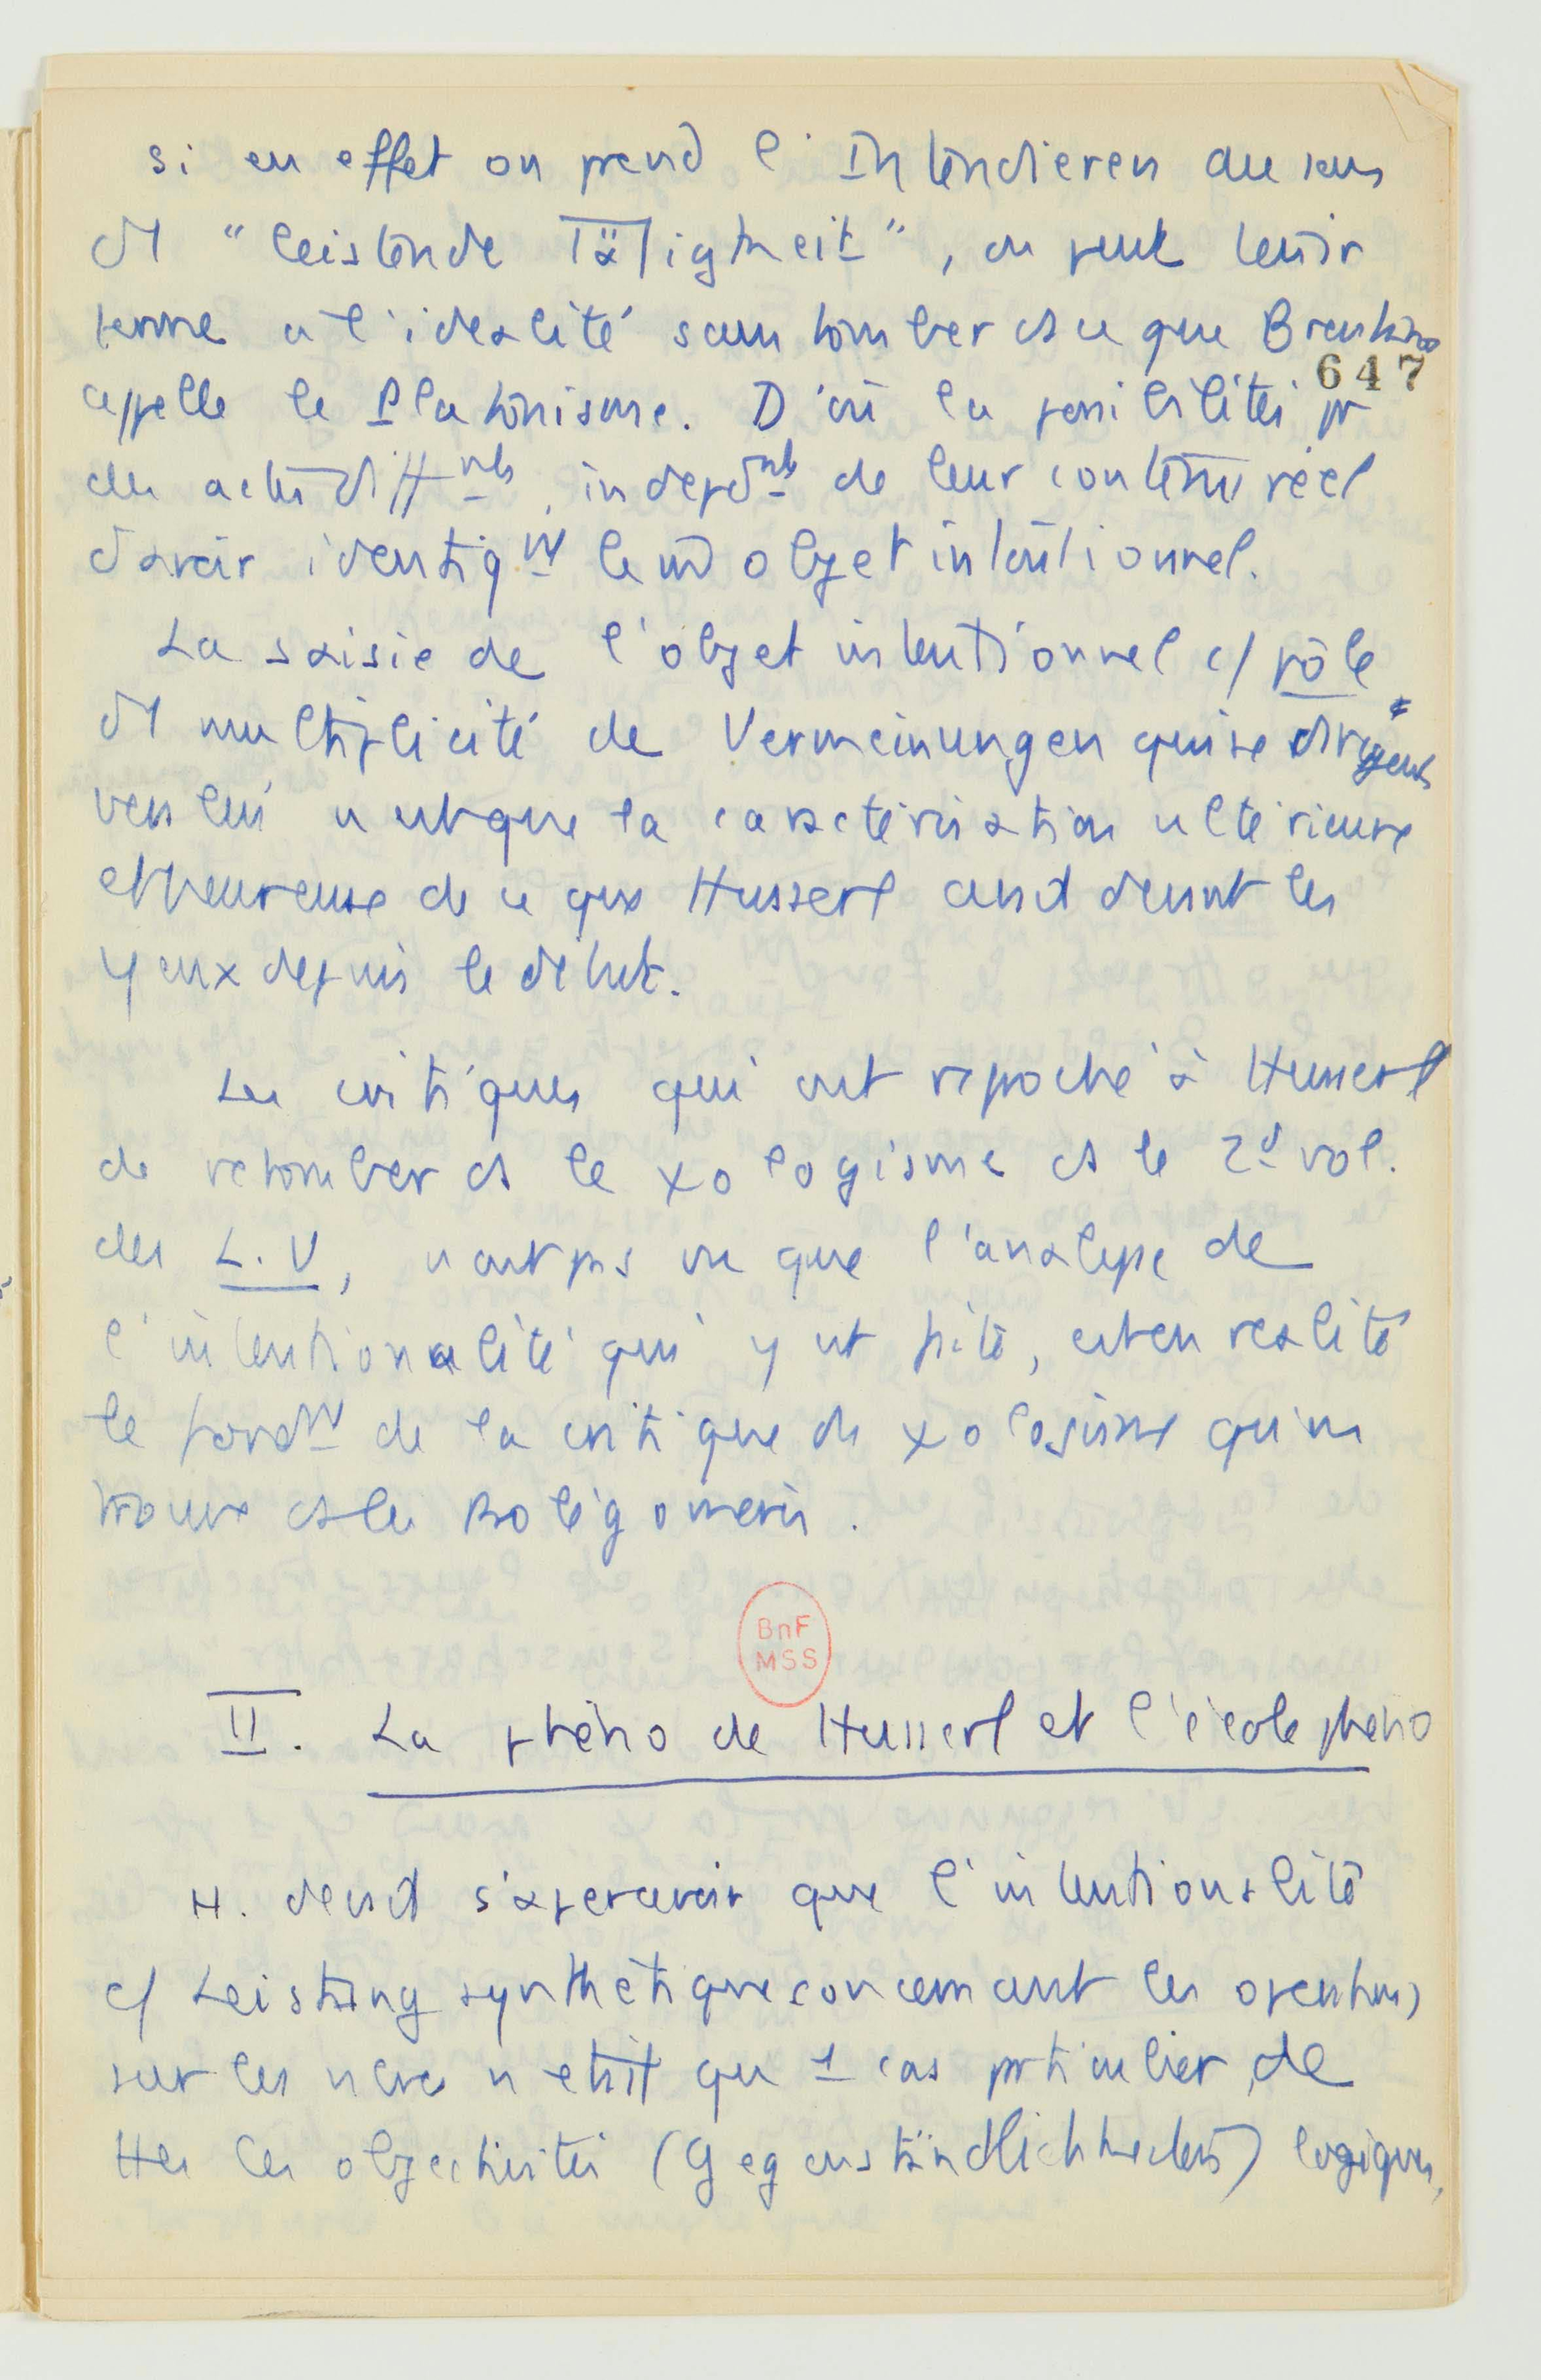 si en effet on prend l'Intendieren au sens
d1 "leistende Tätigkeit", on peut tenir
ferme à l'idéalité sans tomber ds ce que Brentano
647
appelle le Platonisme. D'où la possibilité pr
des actes diffnts, indépdnts de leur contenu réel
d'avoir identiqmt le m̂ objet intentionnel.
La saisie de l'objet intentionnel c/ pôle
d1 multiplicité de Vermeinungen qui se dirigent
vers lui n'est que la caractérisation ultérieure
et heureuse de ce que Husserl avait devant les
yeux depuis le début.
Les critiques qui ont reproché à Husserl
de retomber ds le ψologisme ds le 2d vol.
des L.U, n'ont pas vu que l'analyse de
l'intentionalité qui y est faite, est en réalité
le fondmt de la critique du ψologisme qu'on
trouve ds les Prolégomènes.
BnF
MSS
II. La phéno de Husserl et l'école phéno
H. devait s'apercevoir que l'intentionalité
c/ Leistung synthétique concernant les opérations
sur les nbres n'était qu'1 cas particulier de
ttes les objectivités (Gegenständlichkeiten) logiques,